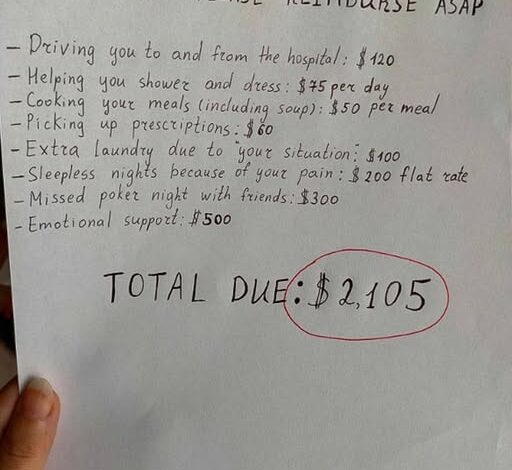 REIMBURSE ASAP
– Driving you to and from the hospital: $120
– Helping you shower and dress: $75 per day
– Cooking your meals (including soup): $50 per meal
– Picking up prescriptions: $60
– Extra laundry due to "your situation": $100
– Sleepless nights because of your pain: $200 flat rate
– Missed poker night with friends: $300
– Emotional support: $500
TOTAL DUE: $2,105